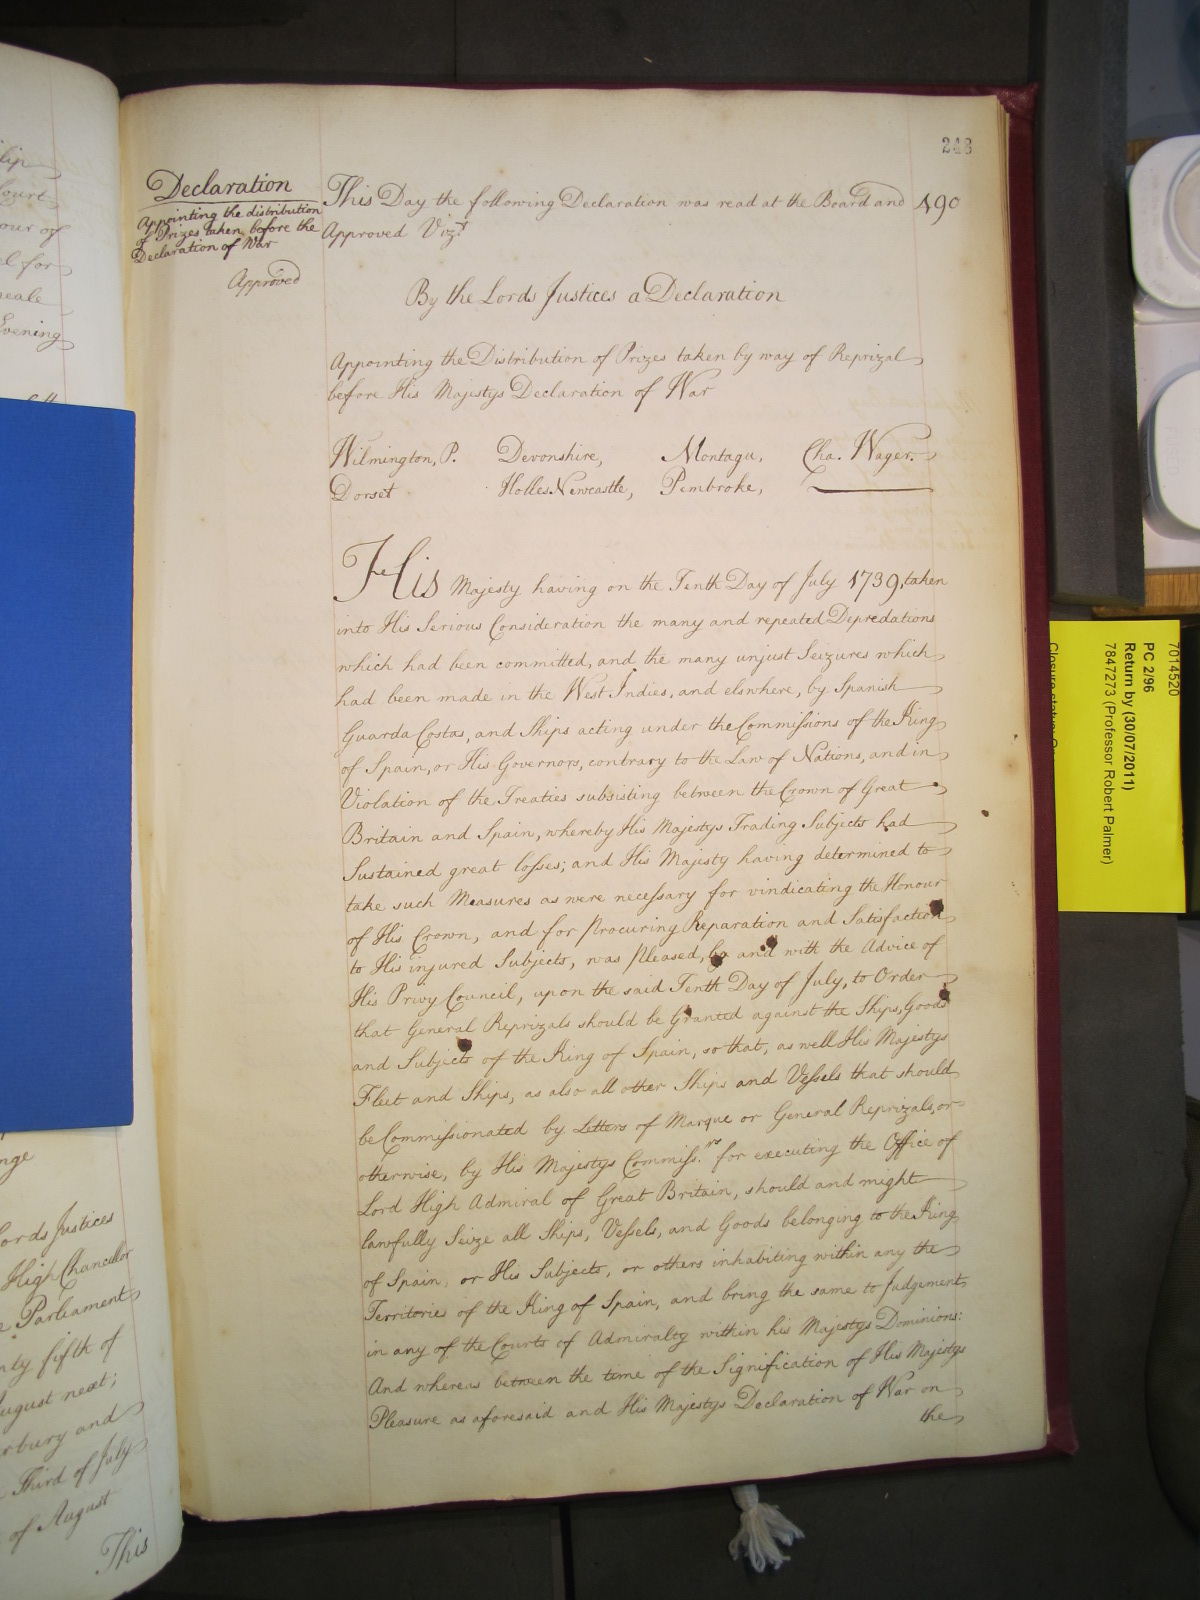 248
490
Declaration
Appointing the distribution
of Prizes taken before the
Declaration of War
Approved
This Day the following Declaration was read at the Board and
Approved Vizt
By the Lords Justices a Declaration
Appointing the Distribution of Prizes taken by way of Reprizal
before His Majestys Declaration of War
Wilmington, P. Devonshire, Montagu, Cha. Wager.
Dorset Holles Newcastle, Pembroke,
His Majesty having on the Tenth Day of July 1739, taken
into His Serious Consideration the many and repeated Depredations
which had been committed, and the many unjust Seizures which
had been made in the West Indies, and elswhere, by Spanish
Guarda Costas, and Ships acting under the Commissions of the King
of Spain, or His Governors, contrary to the Law of Nations, and in
Violation of the Treaties subsisting between the Crown of Great
Britain and Spain, whereby His Majestys Trading Subjects had
Sustained great losses; and His Majesty having determined to
take such Measures as were necessary for vindicating the Honour
of His Crown, and for procuring Reparation and Satisfaction
to His injured Subjects, was pleased, by and with the Advice of
His Privy Council, upon the said Tenth Day of July, to Order
that General Reprizals should be Granted against the Ships, Goods
and Subjects of the King of Spain, so that, as well His Majestys
Fleet and Ships, as also all other Ships and Vessels that should
be Commissionated by Letters of Marque or General Reprizals, or
otherwise, by His Majestys Commiss.rs for executing the Office of
Lord High Admiral of Great Britain, should and might
lawfully Seize all Ships, Vessels, and Goods belonging to the King
of Spain, or His Subjects, or others inhabiting within any the
Territories of the King of Spain, and bring the same to Judgement
in any of the Courts of Admiralty within his Majestys Dominions:
And whereas between the time of the Signification of His Majestys
Pleasure as aforesaid and His Majestys Declaration of War on
the
Court
our of
l for
Evening
Lords Justices
High Chancellor
Parliament
fifth of
August next;
and
Third of July
of August
This
7014520
PC 2/96
Return by (30/07/2011)
7847273 (Professor Robert Palmer)
Closure status: